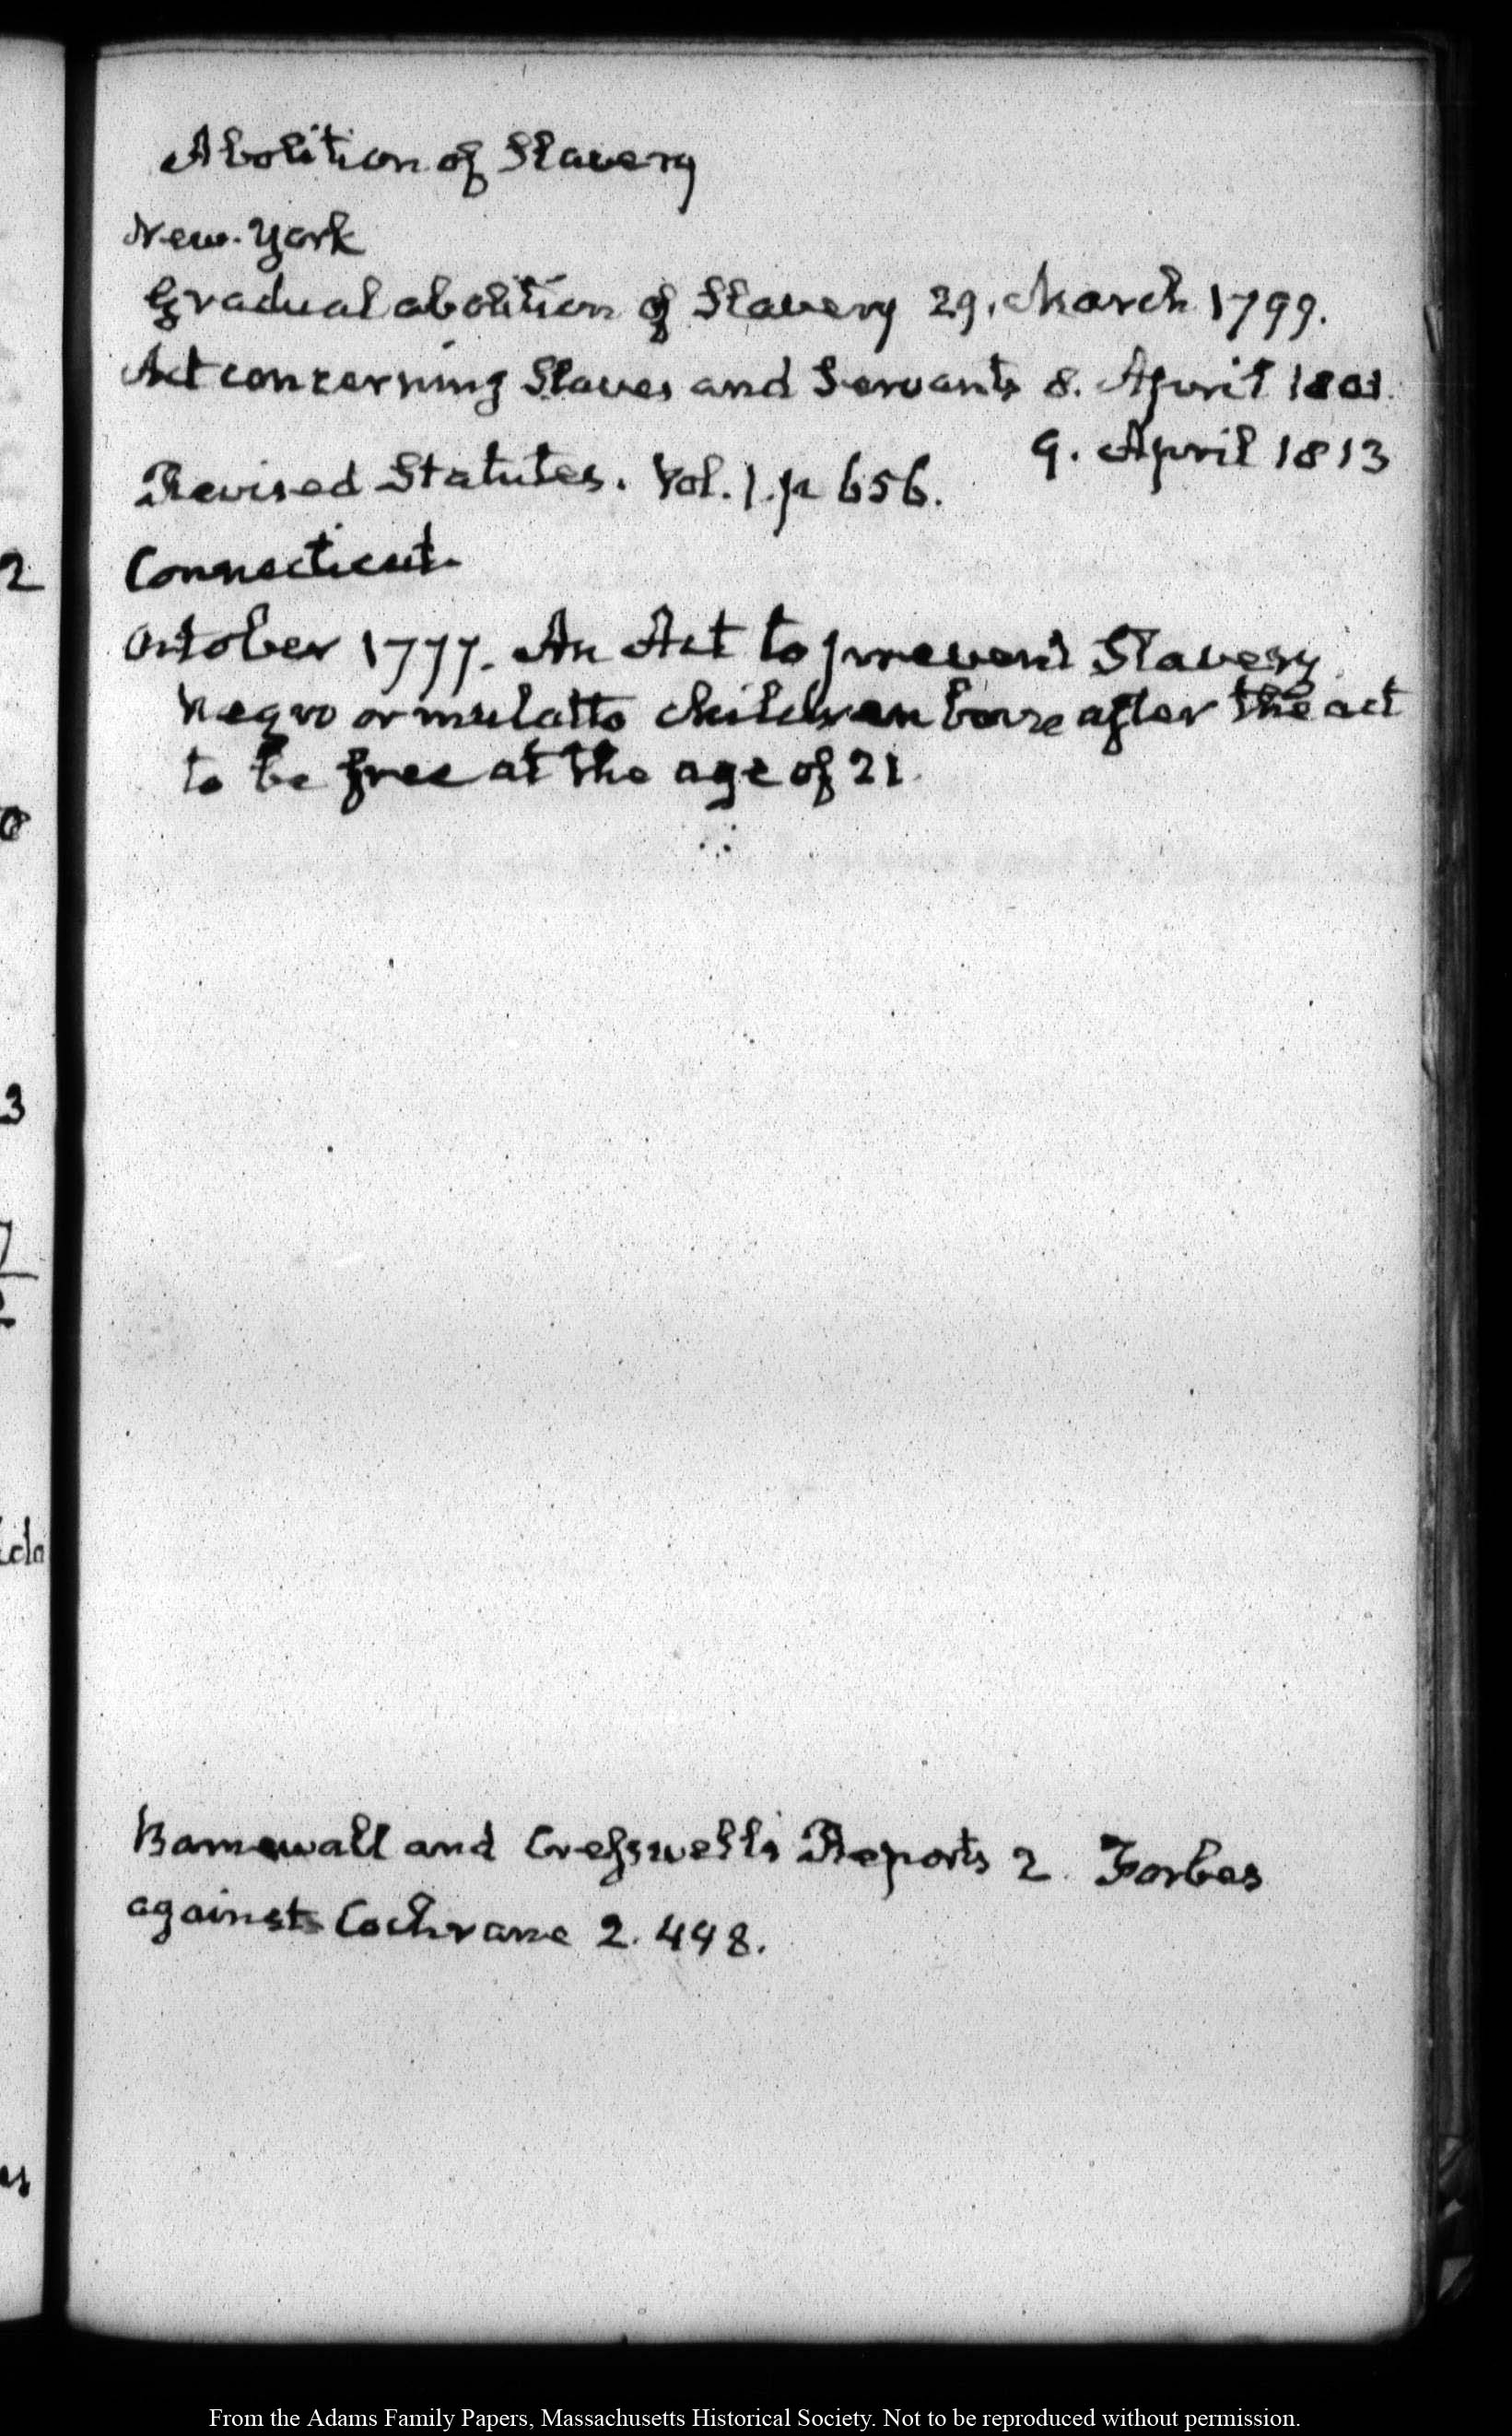 Abolition of Slavery
New-York
Gradual abolition of Slavery 29. March 1799.
Act concerning Slaves and Servants 8. April 1801.
9. April 1813
Revised Statutes. Vol. 1. p 656.
Connecticut.
October 1777. An Act to prevent Slavery
Negro or mulatto children born after the act
to be free at the age of 21.
Barnewall and Cresswell's Reports 2. Forbes
against Cochrane 2. 448.
2
0
3
7
From the Adams Family Papers, Massachusetts Historical Society. Not to be reproduced without permission.